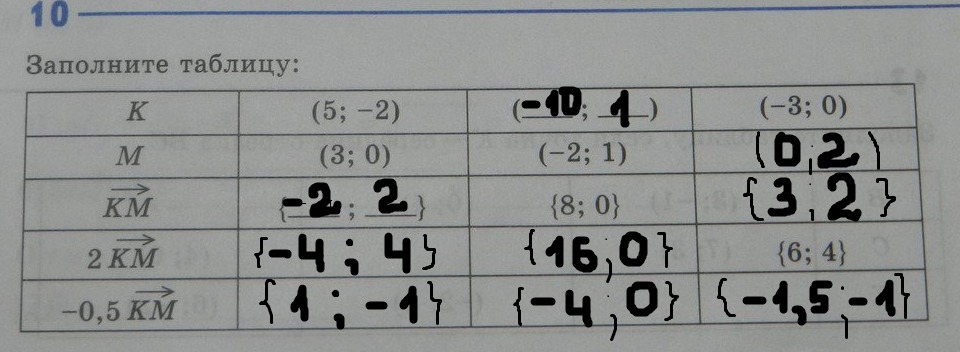 10
Заполните таблицу:
K (5; −2) (−10; 1) (−3; 0)
M (3; 0) (−2; 1) (0; 2)
KM {−2; 2} {8; 0} {3; 2}
2 KM {−4; 4} {16; 0} {6; 4}
−0,5 KM {1; −1} {−4; 0} {−1,5; −1}